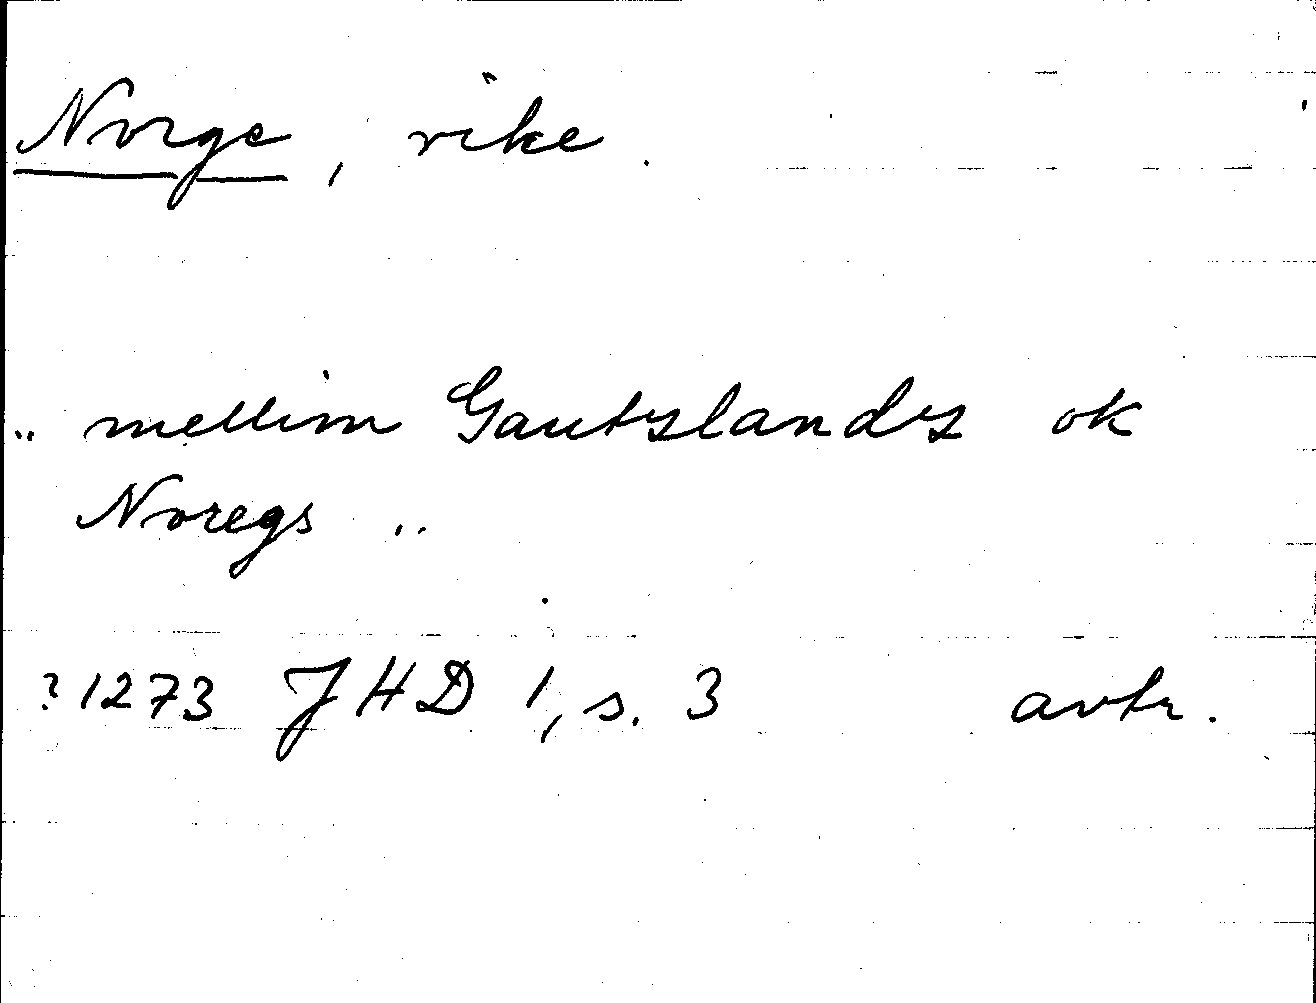 Norge, rike.
.. mellim Gautzlandz ok
Noregs ..
? 1273 JHD 1, s. 3 avtr.